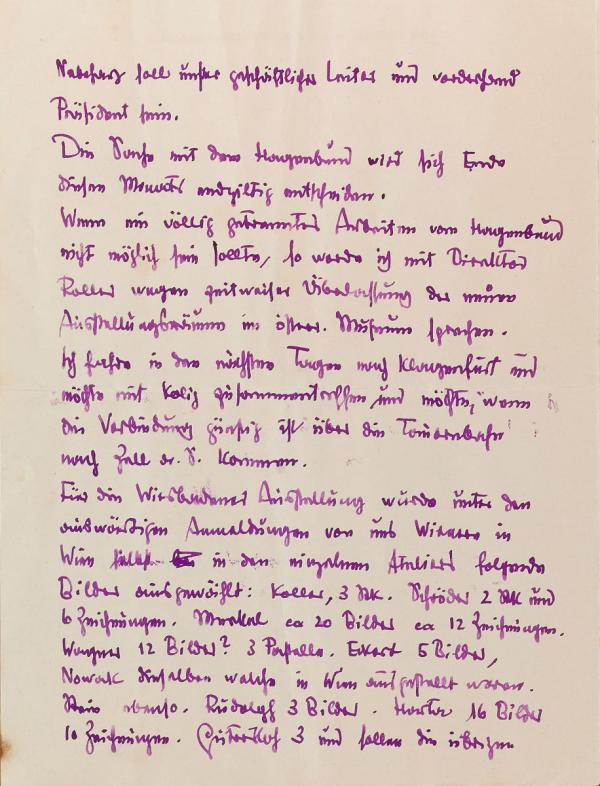 soll unser geschäftlicher Leiter und vorderhand
Präsident sein.
Die Sache mit dem Hagenbund wird sich Ende
dieses Monats endgiltig entscheiden.
Wenn ein völlig getrenntes Arbeiten vom Hagenbund
nicht möglich sein sollte, so werde ich mit Direktor
Roller wegen zeitweiser Überlassung der neuen
Ausstellungsräume im österr. Museum sprechen.
Ich fahre in den nächsten Tagen nach Klagenfurt und
möchte mit Kolig zusammentreffen und möchte, wenn
die Verbindung günstig ist über die Tauernbahn
nach Zell a. S. kommen.
Für die Wiesbadener Ausstellung wurde unter den
auswärtigen Anmeldungen von uns Wienern in
Wien selbst in den einzelnen Ateliers folgende
Bilder ausgewählt: Koller, 3 Stk. Schröder 2 Stk und
6 Zeichnungen. Merkel ca 20 Bilder ca 12 Zeichnungen.
Wagner 12 Bilder? 3 Pastelle. Eckert 5 Bilder,
Nowak dieselben welche in Wien ausgestellt waren.
ebenso. Rudolph 3 Bilder. 16 Bilder
10 Zeichnungen. Gütersloh 3 und sollen die übrigen